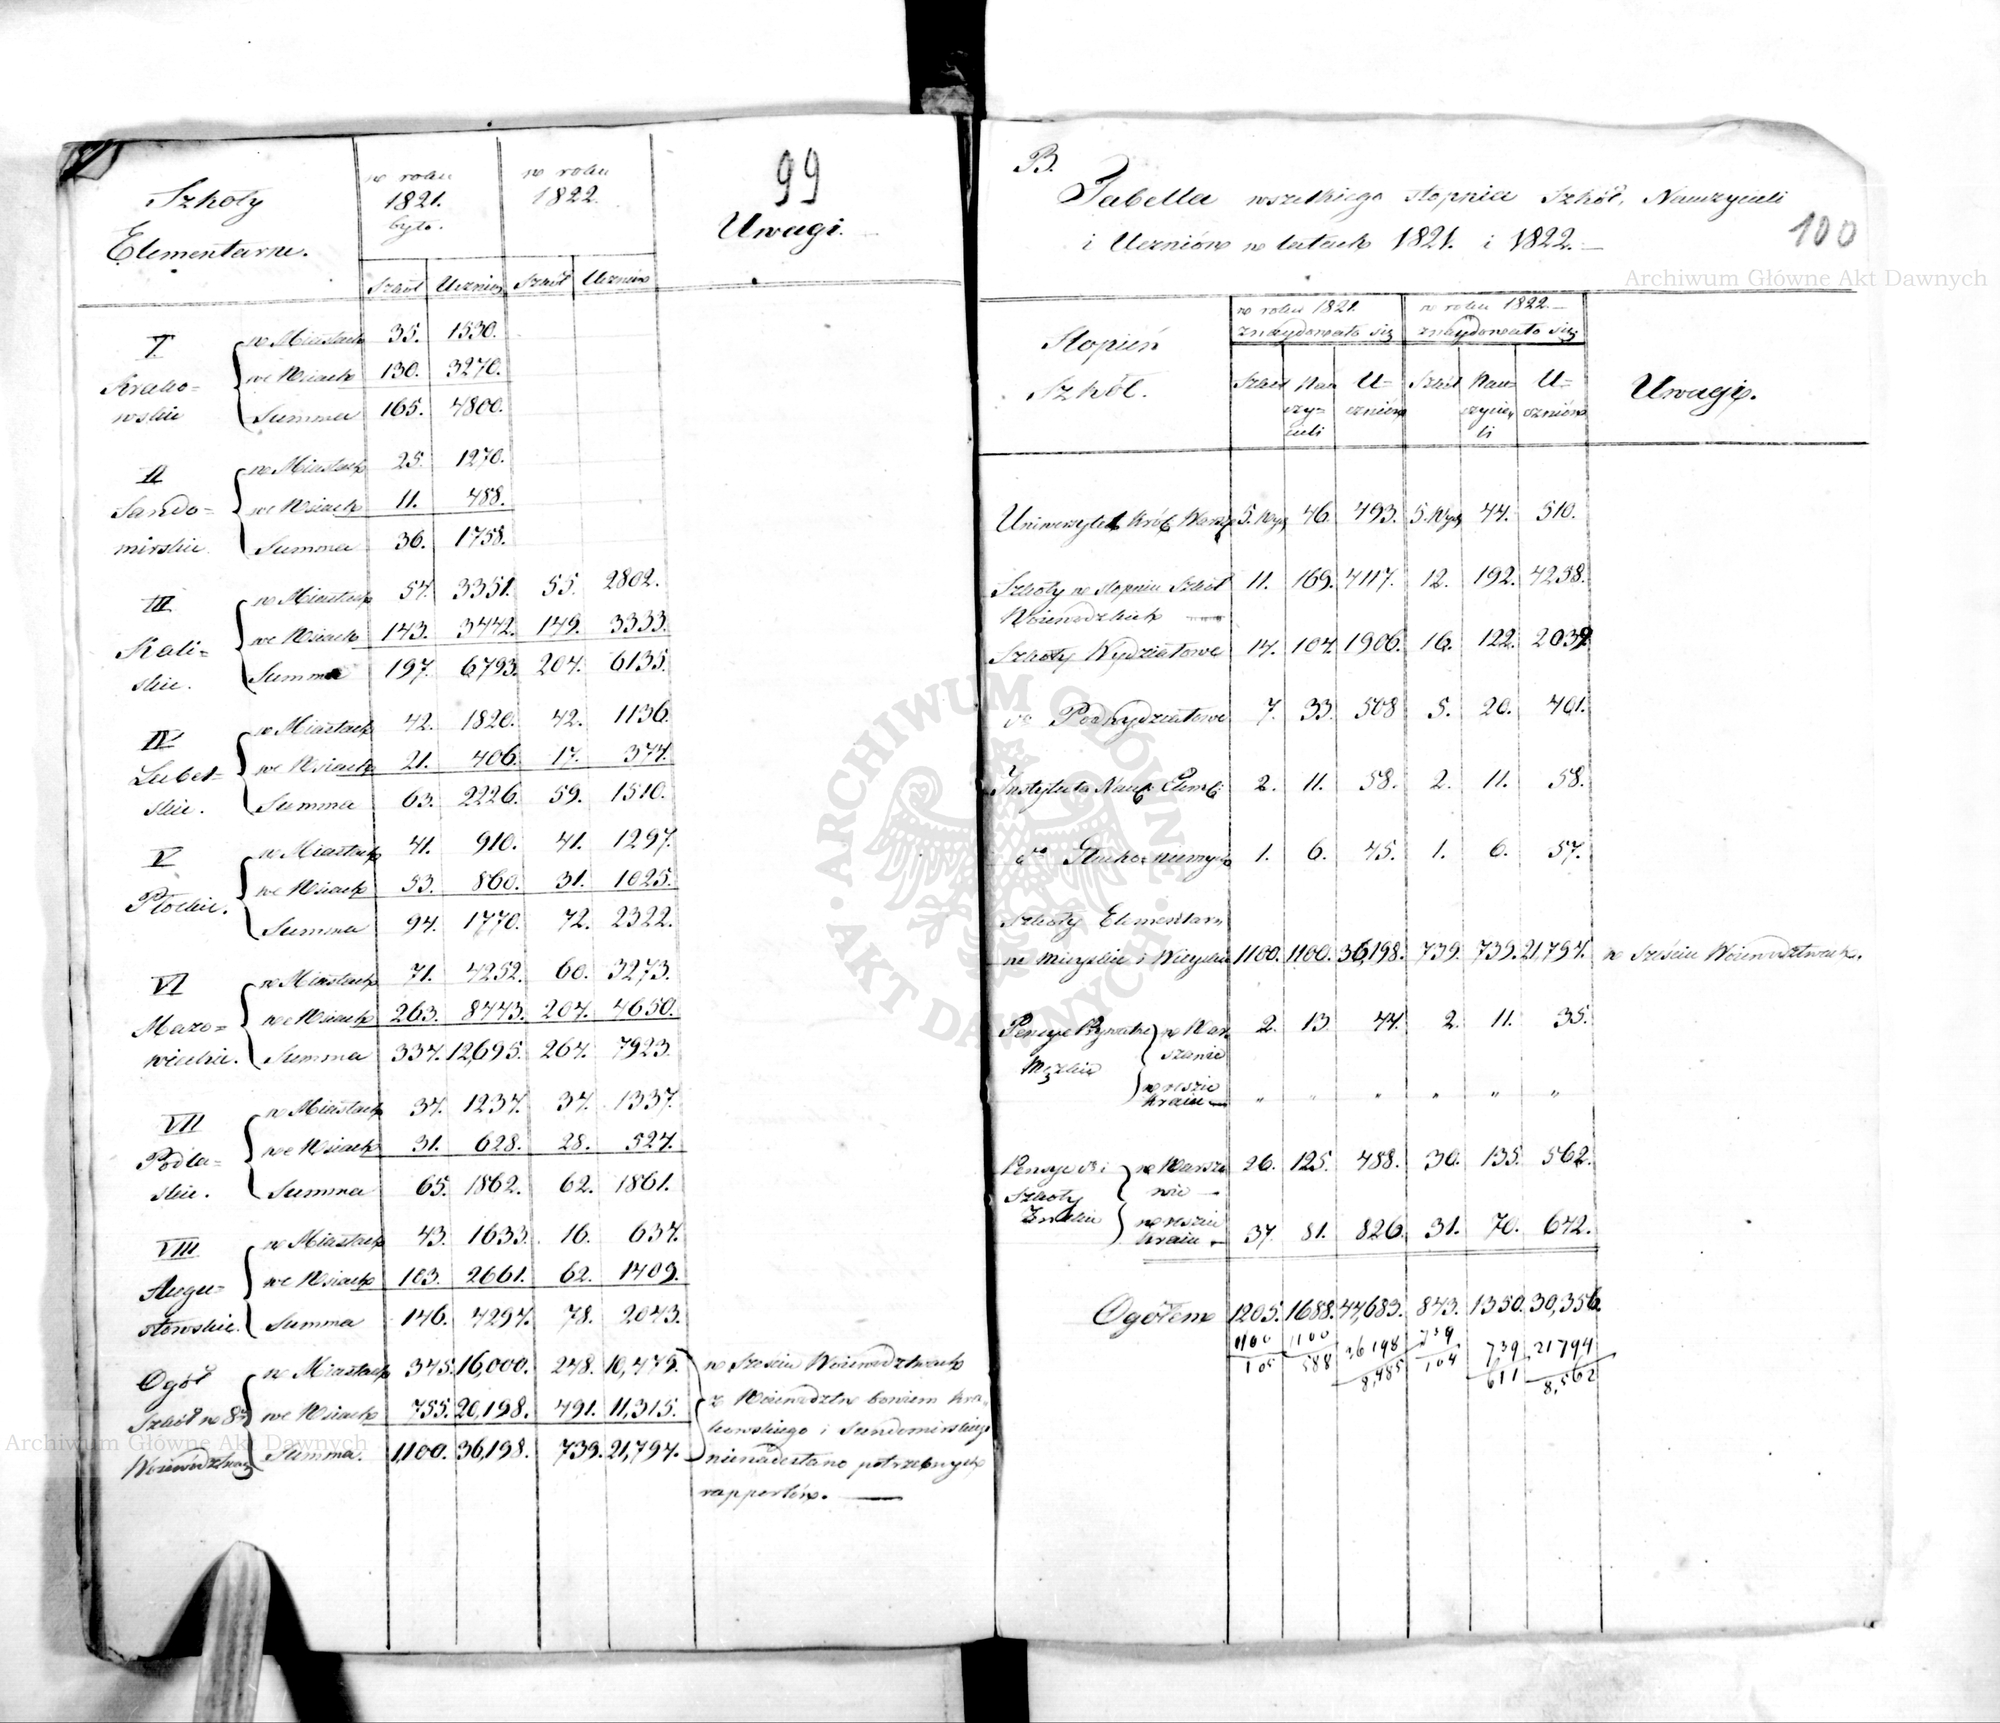 99
Szkoły
Elementarne.
w roku 1821. było.
w roku 1822.
Uwagi.
Szkół Uczniów Szkół Uczniów
I Krakowskie
w Miastach 35. 1530.
we Wsiach 130. 3270.
Summa 165. 4800.
II Sandomirskie
w Miastach 25. 1270.
we Wsiach 11. 488.
Summa 36. 1758.
III Kaliskie.
w Miastach 54. 3351. 55. 2802.
we Wsiach 143. 3442. 149. 3333.
Summa 197. 6793. 204. 6135.
IV Lubelskie.
w Miastach 42. 1820. 42. 1136.
we Wsiach 21. 406. 17. 374.
Summa 63. 2226. 59. 1510.
V Płockie.
w Miastach 41. 910. 41. 1297.
we Wsiach 53. 860. 31. 1025.
Summa 94. 1770. 72. 2322.
VI Mazowieckie.
w Miastach 71. 4252. 60. 3273.
we Wsiach 263. 8443. 204. 4650.
Summa 334. 12,695. 264. 7923.
VII Podlaskie.
w Miastach 34. 1234. 34. 1337.
we Wsiach 31. 628. 28. 524.
Summa 65. 1862. 62. 1861.
VIII Augustowskie.
w Miastach 43. 1633. 16. 634.
we Wsiach 103. 2661. 62. 1409.
Summa 146. 4294. 78. 2043.
Ogół Szkół w 8u Województwach
w Miastach 345. 16,000. 248. 10,479.
we Wsiach 755. 20,198. 491. 11,315.
Summa. 1,100. 36,198. 739. 21,794.
w Sześciu Województwach
z Województw bowiem Kra-
kowskiego i Sandomirskiego
nienadesłano potrzebnych
rapportów.
Archiwum Główne Akt Dawnych
B.
Tabella wszelkiego stopnia Szkół, Nauczycieli
i Uczniów w latach 1821. i 1822.
100
Archiwum Główne Akt Dawnych
Stopień
Szkół.
w roku 1821. znaydowało się
w roku 1822. znaydowało się
Uwagi.
Szkół Nauczycieli Uczniów Szkół Nauczycieli Uczniów
Uniwersytet Król. Warsz. 5. Wydz. 46. 493. 5. Wydz. 44. 510.
Szkoły w stopniu Szkół
Woiewodzkich 11. 169. 4117. 12. 192. 4238.
Szkoły Wydziałowe 14. 104. 1906. 16. 122. 2039
do Podwydziałowe 7. 33. 508 5. 20. 401.
Instytuta Nauk. Elem. 2. 11. 58. 2. 11. 58.
do Głuchoniemych 1. 6. 45. 1. 6. 57.
Szkoły Elementar-
ne mieyskie i Wieyskie 1100. 1100. 36,198. 739. 739. 21,794. w Sześciu Województwach.
Pensye Prywatne Męzkie
w Warszawie 2. 13 44. 2. 11. 35.
w reszcie kraiu " " " " " "
Pensye i Szkoły Żeńskie
w Warszawie 26. 125. 488. 30. 135. 562.
w reszcie kraiu 37. 81. 826. 31. 70. 642.
Ogółem 1205. 1688. 44,683. 843. 1350. 30,356.
1100 1100 36198 739 739 21794
105 588 8,485 104 611 8,562
ARCHIWUM GŁÓWNE
AKT DAWNYCH